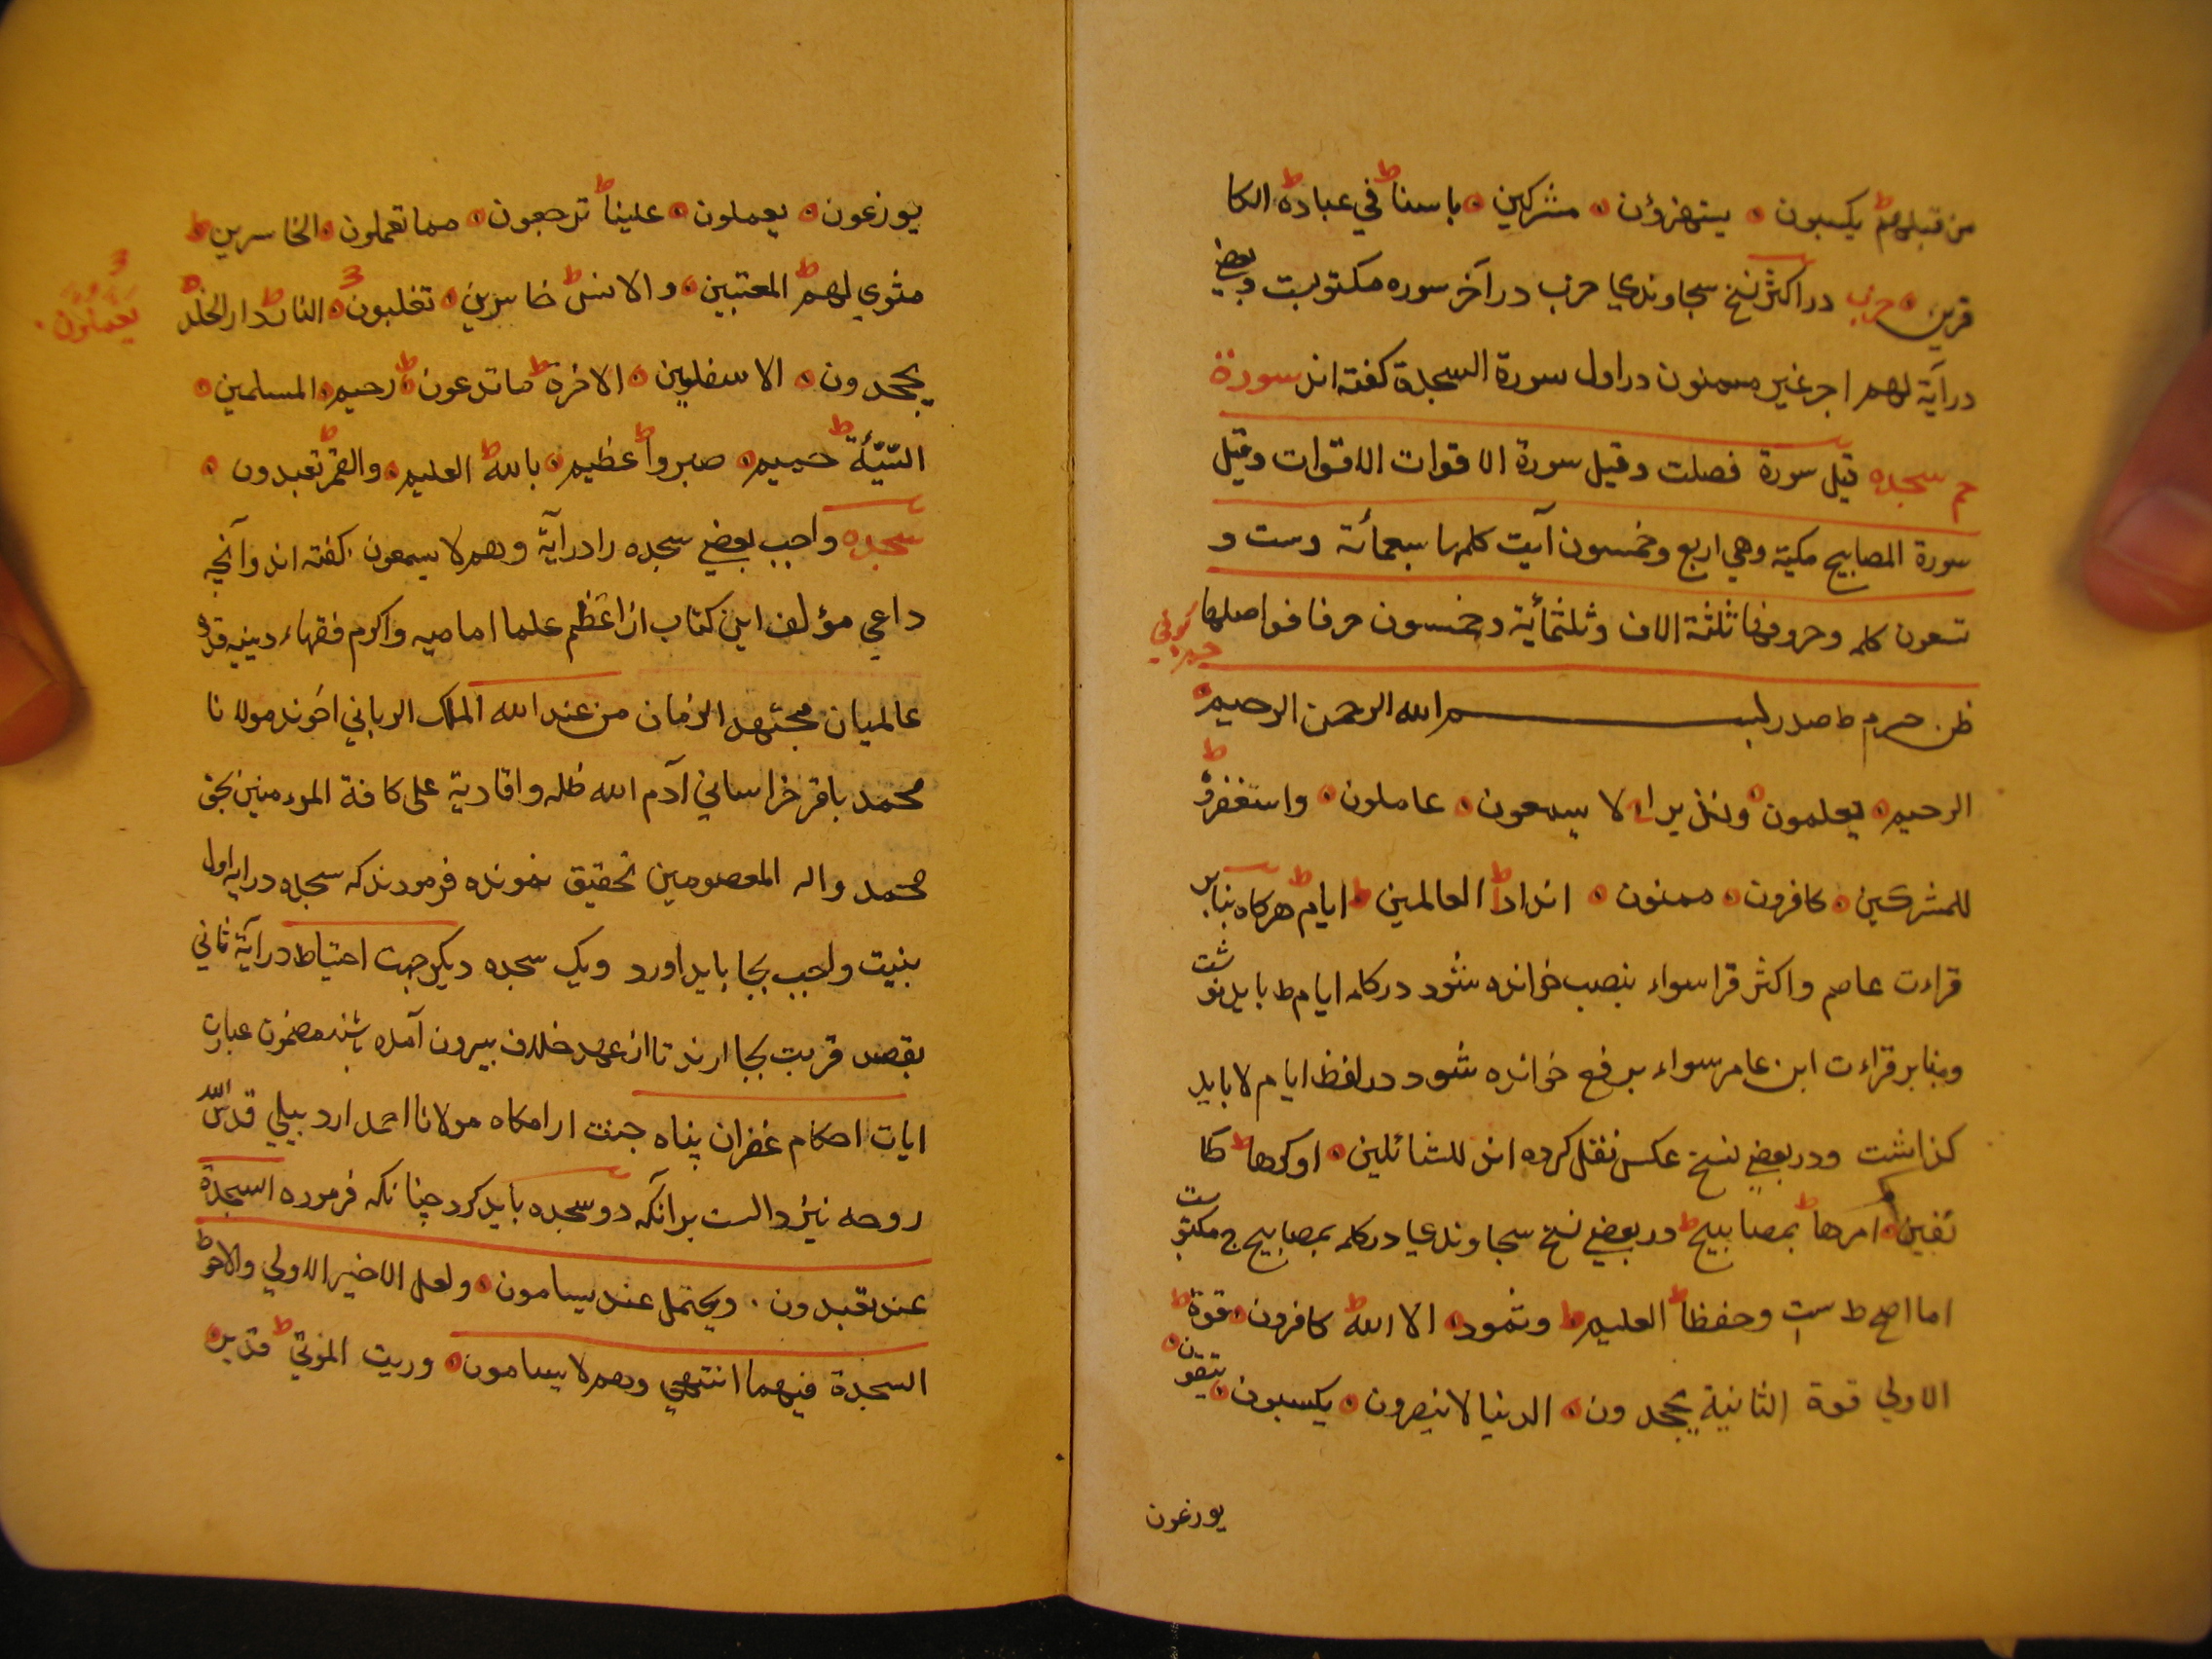 من قبلهم ط يكسبون ه يستهزؤن ه مشركين ه باسنا ط في عباده ط الكا
فرين ه حزب در اكثر نسخ سجاوندي حزب در آخر سوره مكتوبست وبعضي
در آية لهم اجر غير ممنون در اول سورة السجدة كفته اند سورة
حم سجده قيل سورة فصلت وقيل سورة الاقوات الاقوات وقيل
سورة المصابيح مكية وهي اربع وخمسون آيت كلمها سبعمائة وست و
تسعون كلمه وحروفها ثلثة الاف وثلثمائة وخمسون حرفا فواصلها
ظن حرم ط صدر بسم الله الرحمن الرحيم ه
الرحيم ه يعلمون ه ونذيرا لا يسمعون ه عاملون ه واستغفروه ط
للمشركين ه كافرون ه ممنون ه اندادا ط العالمين ط ايام ط هركاه بنابر
قراءت عاصم واكثر قرا سواء بنصب خوانده شود در كلمه ايام ط بايد نوشت
وبنابر قراءت ابن عامر سواء برفع خوانده شود در لفظ ايام لا بايد
كذاشت ودر بعضي نسخ عكس نقل كرده اند للسائلين ه اوكرها ط طا
ئعين ه امرها ط بمصابيح ط ودر بعضي نسخ سجاوندي در كلمه بمصابيح ج مكتوبست
اما اصح ط ست وحفظا ط العليم ط وثمود ه الا الله ط كافرون ه قوة ط
الاولي قوة الثانية يجحدون ه الدنيا لا ينصرون ه يكسبون ه يتقون ه
يوزعون
يوزعون ه يعملون ه علينا ط ترجعون ه مما تعملون ه الخاسرين ط
مثوي لهم ط المعتبين ه والانس ط خاسرين ه تغلبون ه النار ط دار الخلد ط
يعملون
يجحدون ه الاسفلين ه الاخرة ط ما تدعون ط رحيم ه المسلمين ه
السيئة ط حميم ه صبروا ط عظيم ه بالله ط العليم ه والقمر ط تعبدون ه
سجده واجب بعضي سجده را در آية وهم لا يسمعون كفته اند وآنچه
داعي مؤلف اين كتاب از اعظم علما اماميه واكرم فقهاء دينيه قدوه
عالميان مجتهد الزمان من عند الله الملك الرباني اخوند مولانا
محمد باقر خراساني آدم الله ظله وافاديه على كافة المومنين بحق
محمد واله المعصومين تحقيق نموده فرمودند كه سجده در ايه اول
بنيت واجب بجا بايد اورد ويك سجده ديكر جهت احتياط در آية ثاني
بقصد قربت بجا ارند تا از عهد خلاف بيرون آمده باشند مضمون عبارت
ايات احكام غفران پناه جنت ارامكاه مولانا احمد اردبيلي قدس الله
روحه نيز دالست برانكه دو سجده بايد كرد چنانكه فرموده السجدة
عند تعبدون ه ويحتمل عند يسامون ه ولعل الاخير الاولي والاحوط
السجدة فيهما انتهي وهم لا يسامون ه وربت ط الموتي ط قدير ه